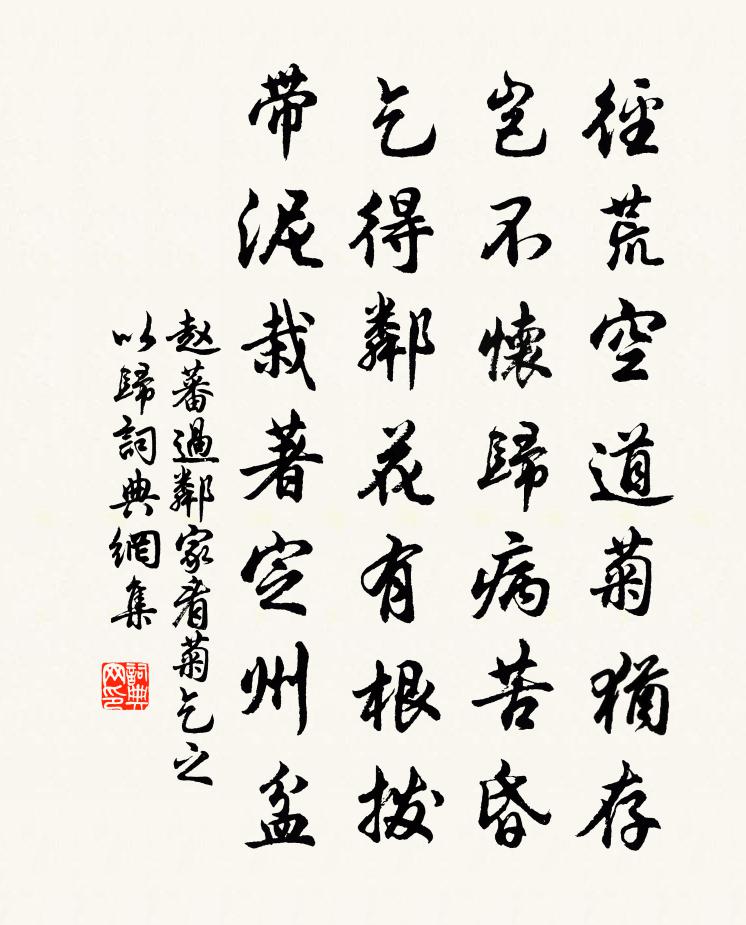 徑荒空道菊猶存
豈不懷歸病苦昏
乞得鄰花有根撥
帶泥栽著定州盆
赵蕃過鄰家看菊乞之
以歸詞典網集
詞典
网印